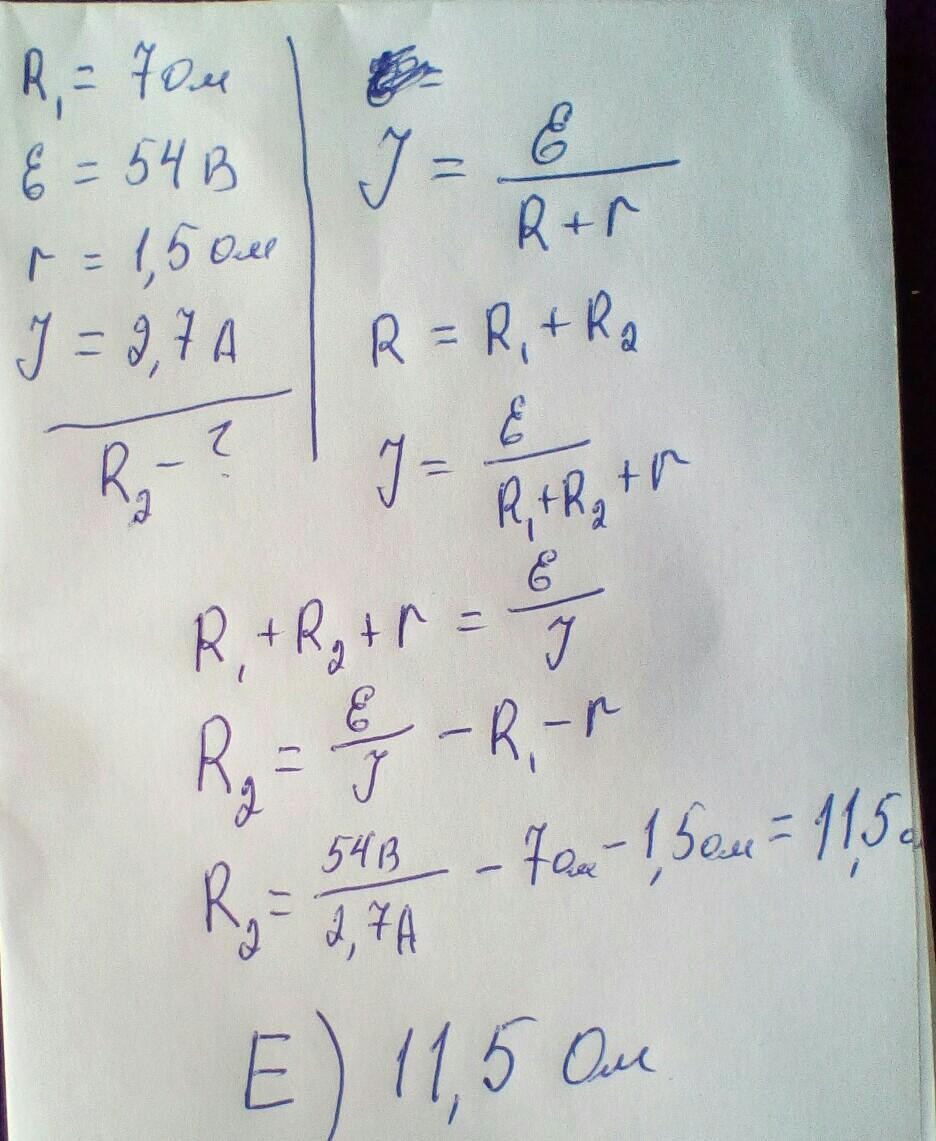 R₁ = 7 Ом
Ɛ = 54 В
r = 1,5 Ом
J = 2,7 А
R₂ - ?
J = Ɛ / (R + r)
R = R₁ + R₂
J = Ɛ / (R₁ + R₂ + r)
R₁ + R₂ + r = Ɛ / J
R₂ = Ɛ / J - R₁ - r
R₂ = 54 В / 2,7 А - 7 Ом - 1,5 Ом = 11,5
E) 11,5 Ом